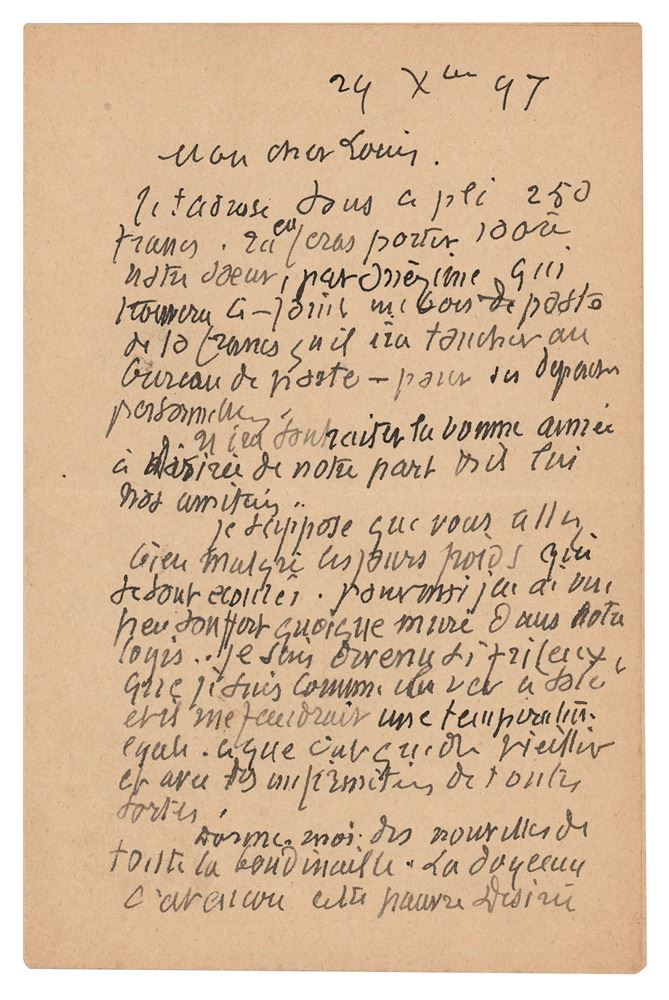 29 Xbre 97
Mon cher Louis.
Je t'adresse dans ce pli 250
francs. Tu en feras porter 100 à
notre soeur, par Onézime qui
trouvera ci-joint un bon de poste
de 10 francs qu'il ira toucher au
bureau de poste - pour ses dépenses
personnelles.
Il ira souhaiter la bonne année
à Désirée de notre part dis lui
nos amitiés..
je suppose que vous allez
bien malgré les jours froids qui
se sont écoulés. pour moi j'ai ai un
peu souffert quoique muré dans notre
logis.. je suis devenu si frileux,
que je suis comme un ver à soie
et il me faudrait une température
égale. ce que c'est que de vieillir
et avec des infirmités de toutes
sortes.
Donne-moi des nouvelles de
toute la boudinaille. La doyenne
c'est encore cette pauvre Désirée